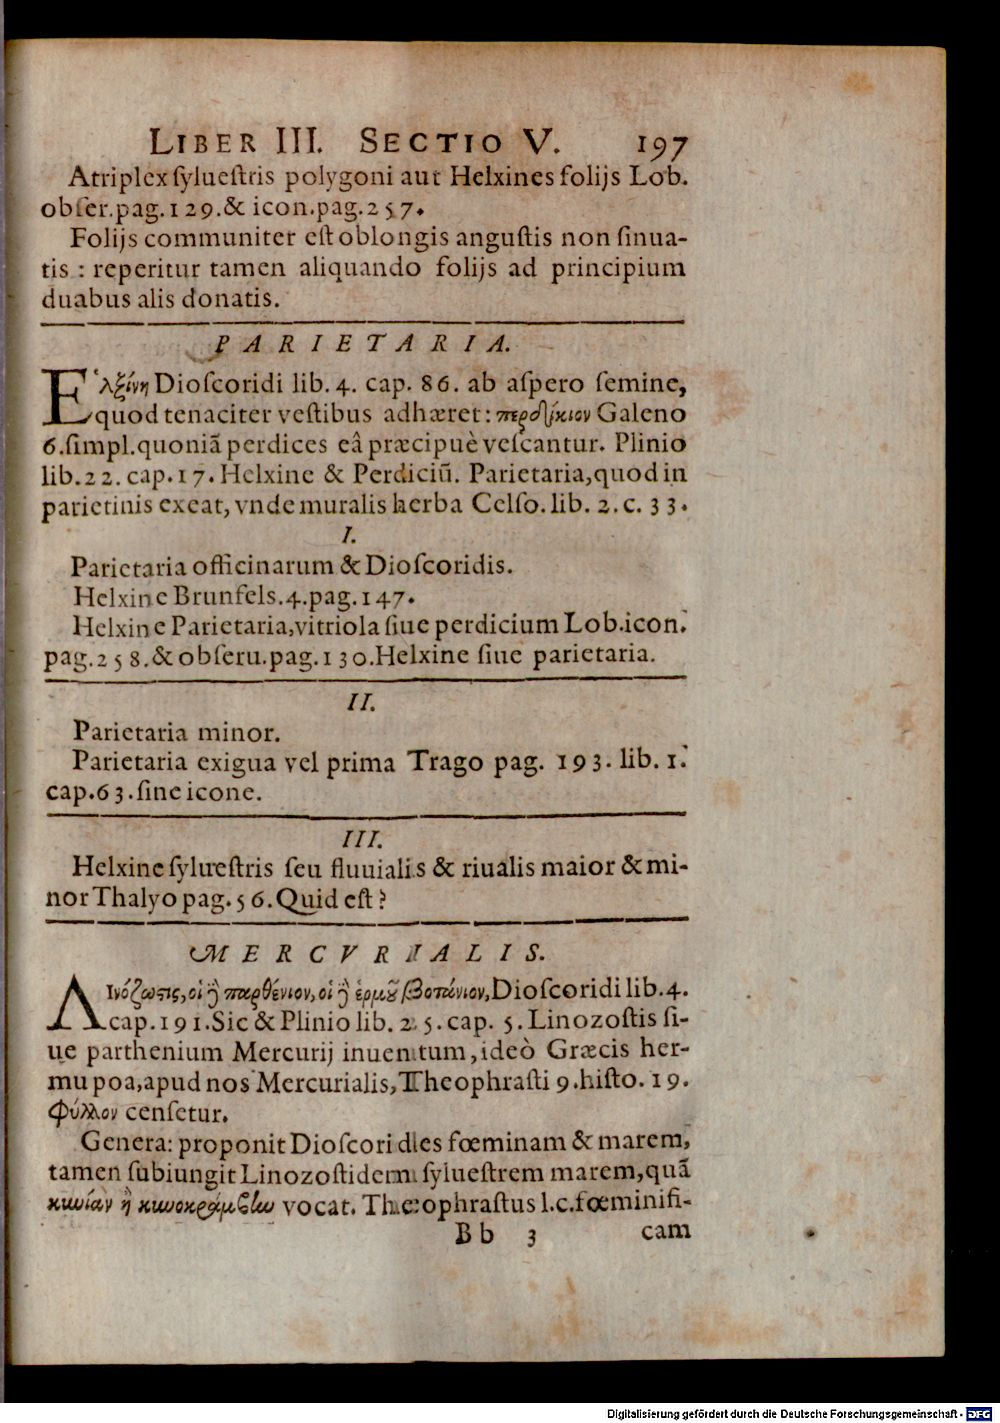 LIBER III. SECTIO V. 197
Atriplex sylueſtris polygoni aut Helxines folijs Lob.
obſer.pag.129.& icon.pag.257.
Folijs communiter eſt oblongis anguſtis non ſinua-
tis : reperitur tamen aliquando folijs ad principium
duabus alis donatis.
PARIETARIA.
Ἑλξίνη Dioſcoridi lib. 4. cap. 86. ab aſpero ſemine,
quod tenaciter veſtibus adhæret: περδίκιον Galeno
6.ſimpl.quoniã perdices eâ præcipuè veſcantur. Plinio
lib.22.cap.17.Helxine & Perdiciũ. Parietaria,quod in
parietinis exeat, vnde muralis herba Celſo. lib. 2. c. 33.
I.
Parietaria officinarum & Dioſcoridis.
Helxine Brunfels.4.pag.147.
Helxine Parietaria,vitriola ſiue perdicium Lob.icon.
pag.258.& obſeru.pag.130.Helxine ſiue parietaria.
II.
Parietaria minor.
Parietaria exigua vel prima Trago pag. 193. lib. 1.
cap.63.ſine icone.
III.
Helxine ſylueſtris ſeu fluuialis & riualis maior & mi-
nor Thalyo pag.56.Quid eſt?
MERCVRIALIS.
Λινόζωστις, οἱ ἢ παρθένιον, οἱ ἢ ἑρμοῦ βοτάνιον, Dioſcoridi lib.4.
cap.191.Sic & Plinio lib. 25. cap. 5. Linozoſtis ſi-
ue parthenium Mercurij inuentum,ideò Græcis her-
mu poa,apud nos Mercurialis, Theophraſti 9.hiſto. 19.
φύλλον cenſetur.
Genera: proponit Dioſcorides fœminam & marem,
tamen ſubiungit Linozoſtidem ſylueſtrem marem,quã
κυνίαν ἢ κυνοκράμβην vocat. Theophraſtus l.c.fœminiſi-
Bb 3 cam
Digitalisierung gefördert durch die Deutsche Forschungsgemeinschaft - DFG